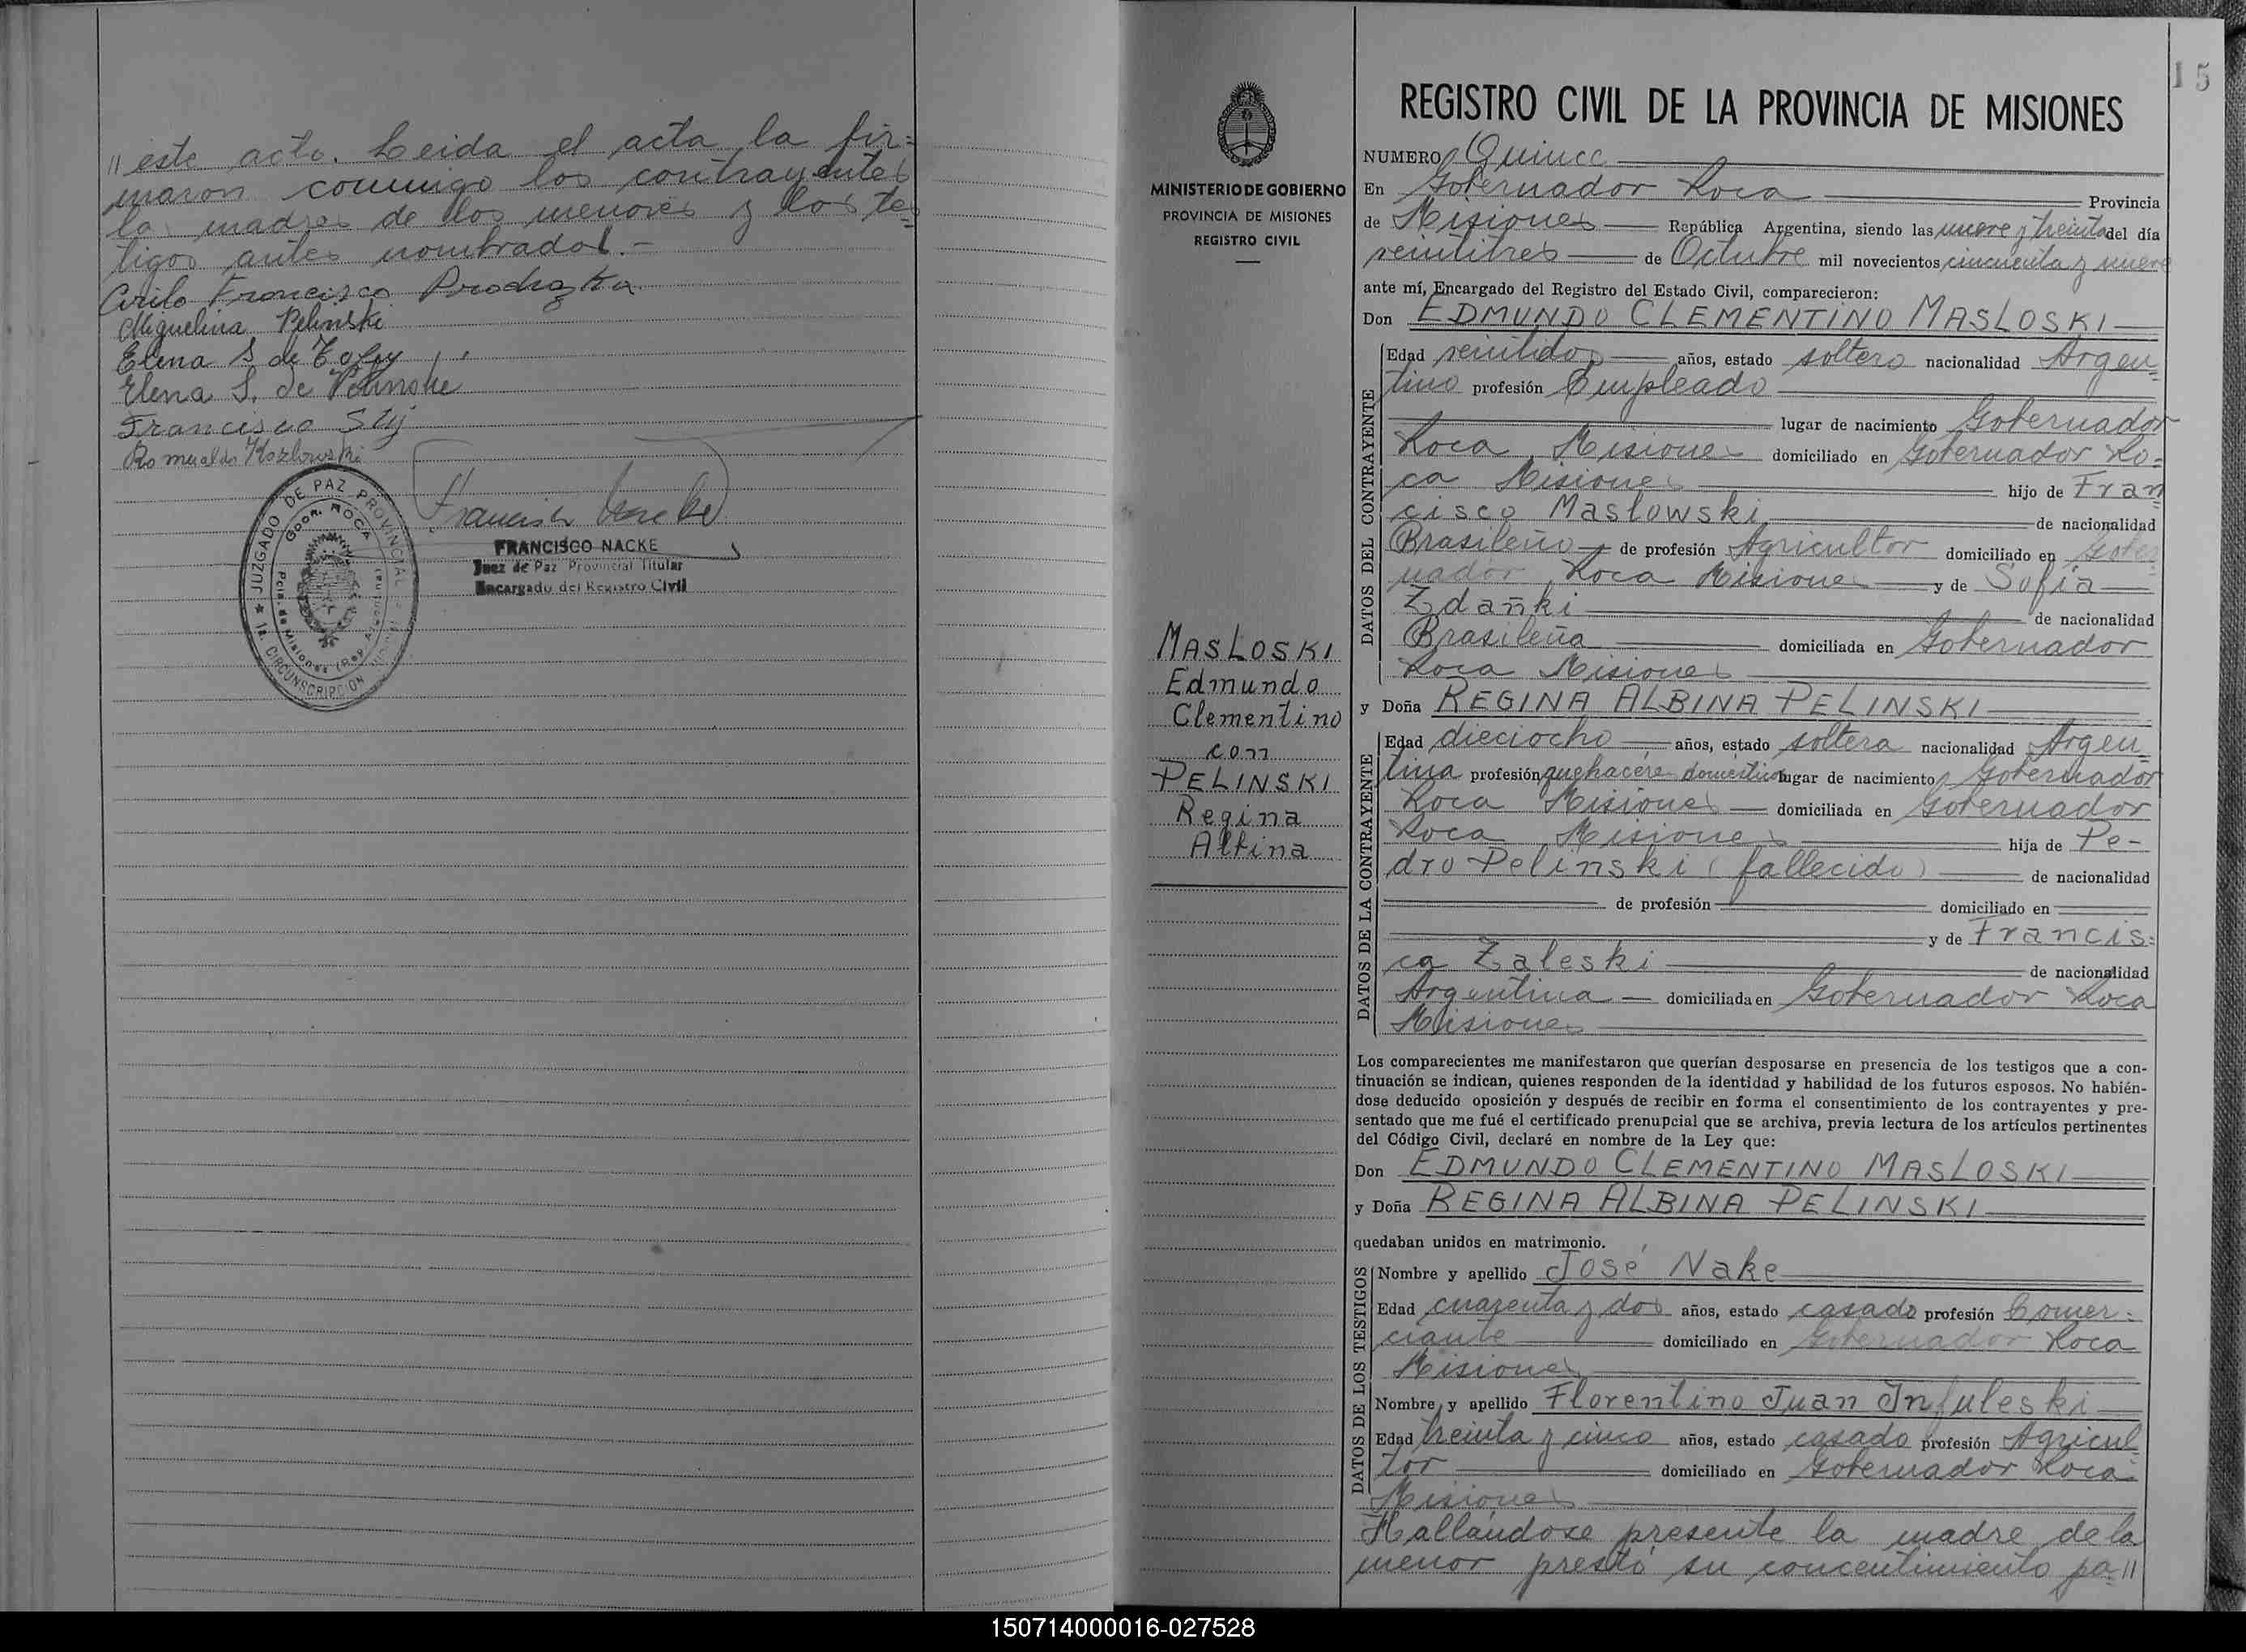 // este acto. Leida el acta la fir=
maron conmigo los contrayentes
la madres de los menores y los tes=
tigos antes nombrados.-
Cirilo Francisco Prochazka
Miguelina Pelinski
Elena S. de
Elena S. de Pelinski
Francisco
Romualdo Kozlowski
JUZGADO DE PAZ PROVINCIAL
GDOR. ROCA
Pcia. de Misiones (Rep. Argentina)
1a. CIRCUNSCRIPCION
FRANCISCO NACKE
Juez de Paz Provincial Titular
Encargado del Registro Civil
15
MINISTERIO DE GOBIERNO
PROVINCIA DE MISIONES
REGISTRO CIVIL
MASLOSKI
Edmundo
Clementino
con
PELINSKI
Regina
Albina
REGISTRO CIVIL DE LA PROVINCIA DE MISIONES
NUMERO Quince
En Gobernador Roca Provincia
de Misiones República Argentina, siendo las nueve y treinta del día
veintitres de Octubre mil novecientos cincuenta y nueve
ante mí, Encargado del Registro del Estado Civil, comparecieron:
Don EDMUNDO CLEMENTINO MASLOSKI
DATOS DEL CONTRAYENTE
Edad veintidos años, estado soltero nacionalidad Argen=
tino profesión Empleado
lugar de nacimiento Gobernador
Roca Misiones domiciliado en Gobernador Ro=
ca Misiones hijo de Fran
cisco Maslowski de nacionalidad
Brasileño de profesión Agricultor domiciliado en Gober
nador Roca Misiones y de Sofía
Zdañki de nacionalidad
Brasileña domiciliada en Gobernador
Roca Misiones
y Doña REGINA ALBINA PELINSKI
DATOS DE LA CONTRAYENTE
Edad dieciocho años, estado soltera nacionalidad Argen=
tina profesión quehaceres domésticos lugar de nacimiento Gobernador
Roca Misiones domiciliada en Gobernador
Roca Misiones hija de Pe-
dro Pelinski (fallecido) de nacionalidad
de profesión domiciliado en
y de Francis=
ca Zaleski de nacionalidad
Argentina domiciliada en Gobernador Roca
Misiones
Los comparecientes me manifestaron que querían desposarse en presencia de los testigos que a con-
tinuación se indican, quienes responden de la identidad y habilidad de los futuros esposos. No habién-
dose deducido oposición y después de recibir en forma el consentimiento de los contrayentes y pre-
sentado que me fué el certificado prenupcial que se archiva, previa lectura de los artículos pertinentes
del Código Civil, declaré en nombre de la Ley que:
Don EDMUNDO CLEMENTINO MASLOSKI
y Doña REGINA ALBINA PELINSKI
quedaban unidos en matrimonio.
DATOS DE LOS TESTIGOS
Nombre y apellido José Nake
Edad cuarenta y dos años, estado casado profesión Comer=
ciante domiciliado en Gobernador Roca
Misiones
Nombre y apellido Florentino Juan Infuleski
Edad treinta y cinco años, estado casado profesión Agricul
tor domiciliado en Gobernador Roca
Misiones
Hallándose presente la madre de la
menor prestó su concentimiento pa=//
150714000016-027528